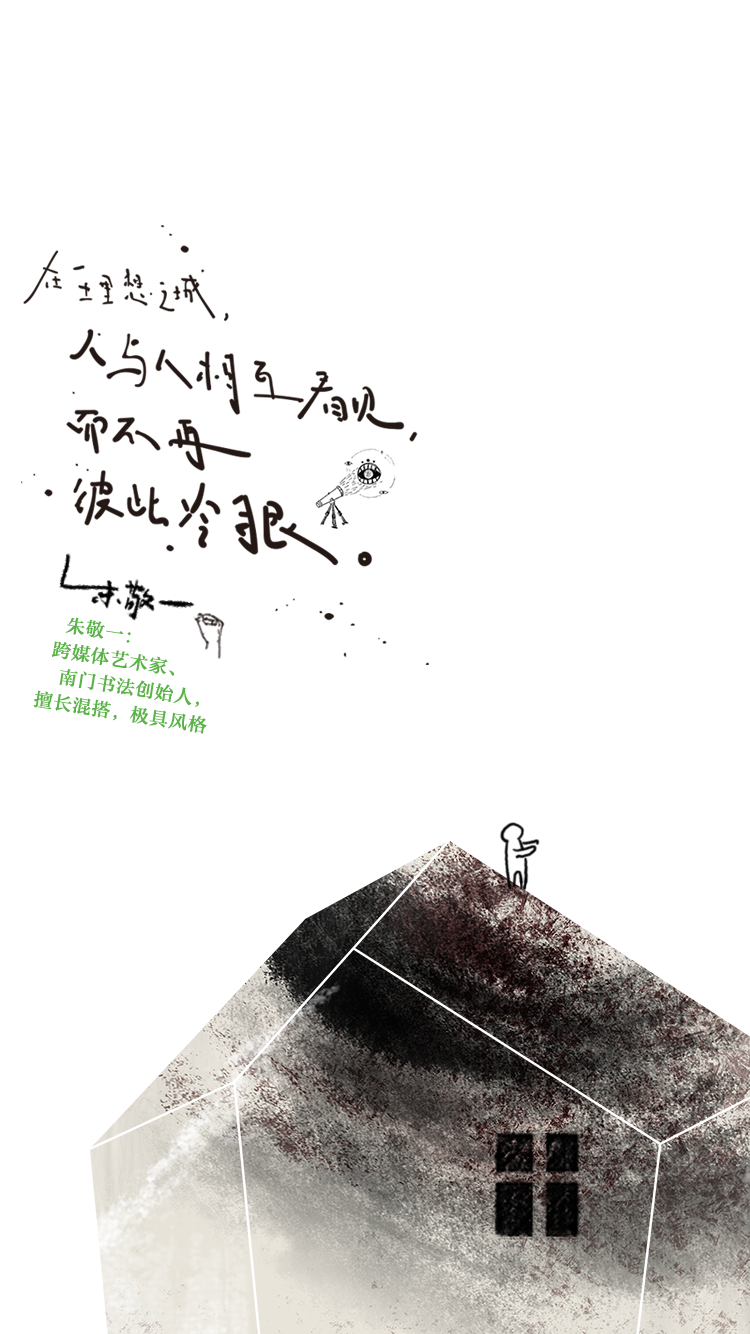 在理想之城，
人与人相互看见，
而不再
彼此冷眼。
朱敬一
朱敬一：
跨媒体艺术家、
南门书法创始人，
擅长混搭，极具风格